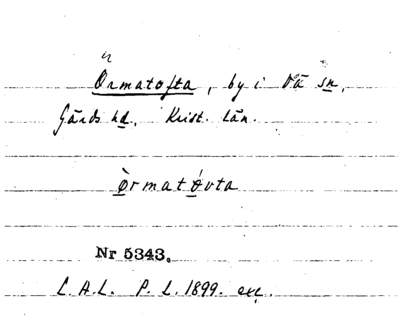 Örmatofta, by i Vä sn,
Gärds hd. Krist. län.
òrmatóvta
Nr 5343.
L.A.L. P. L. 1899. exc.